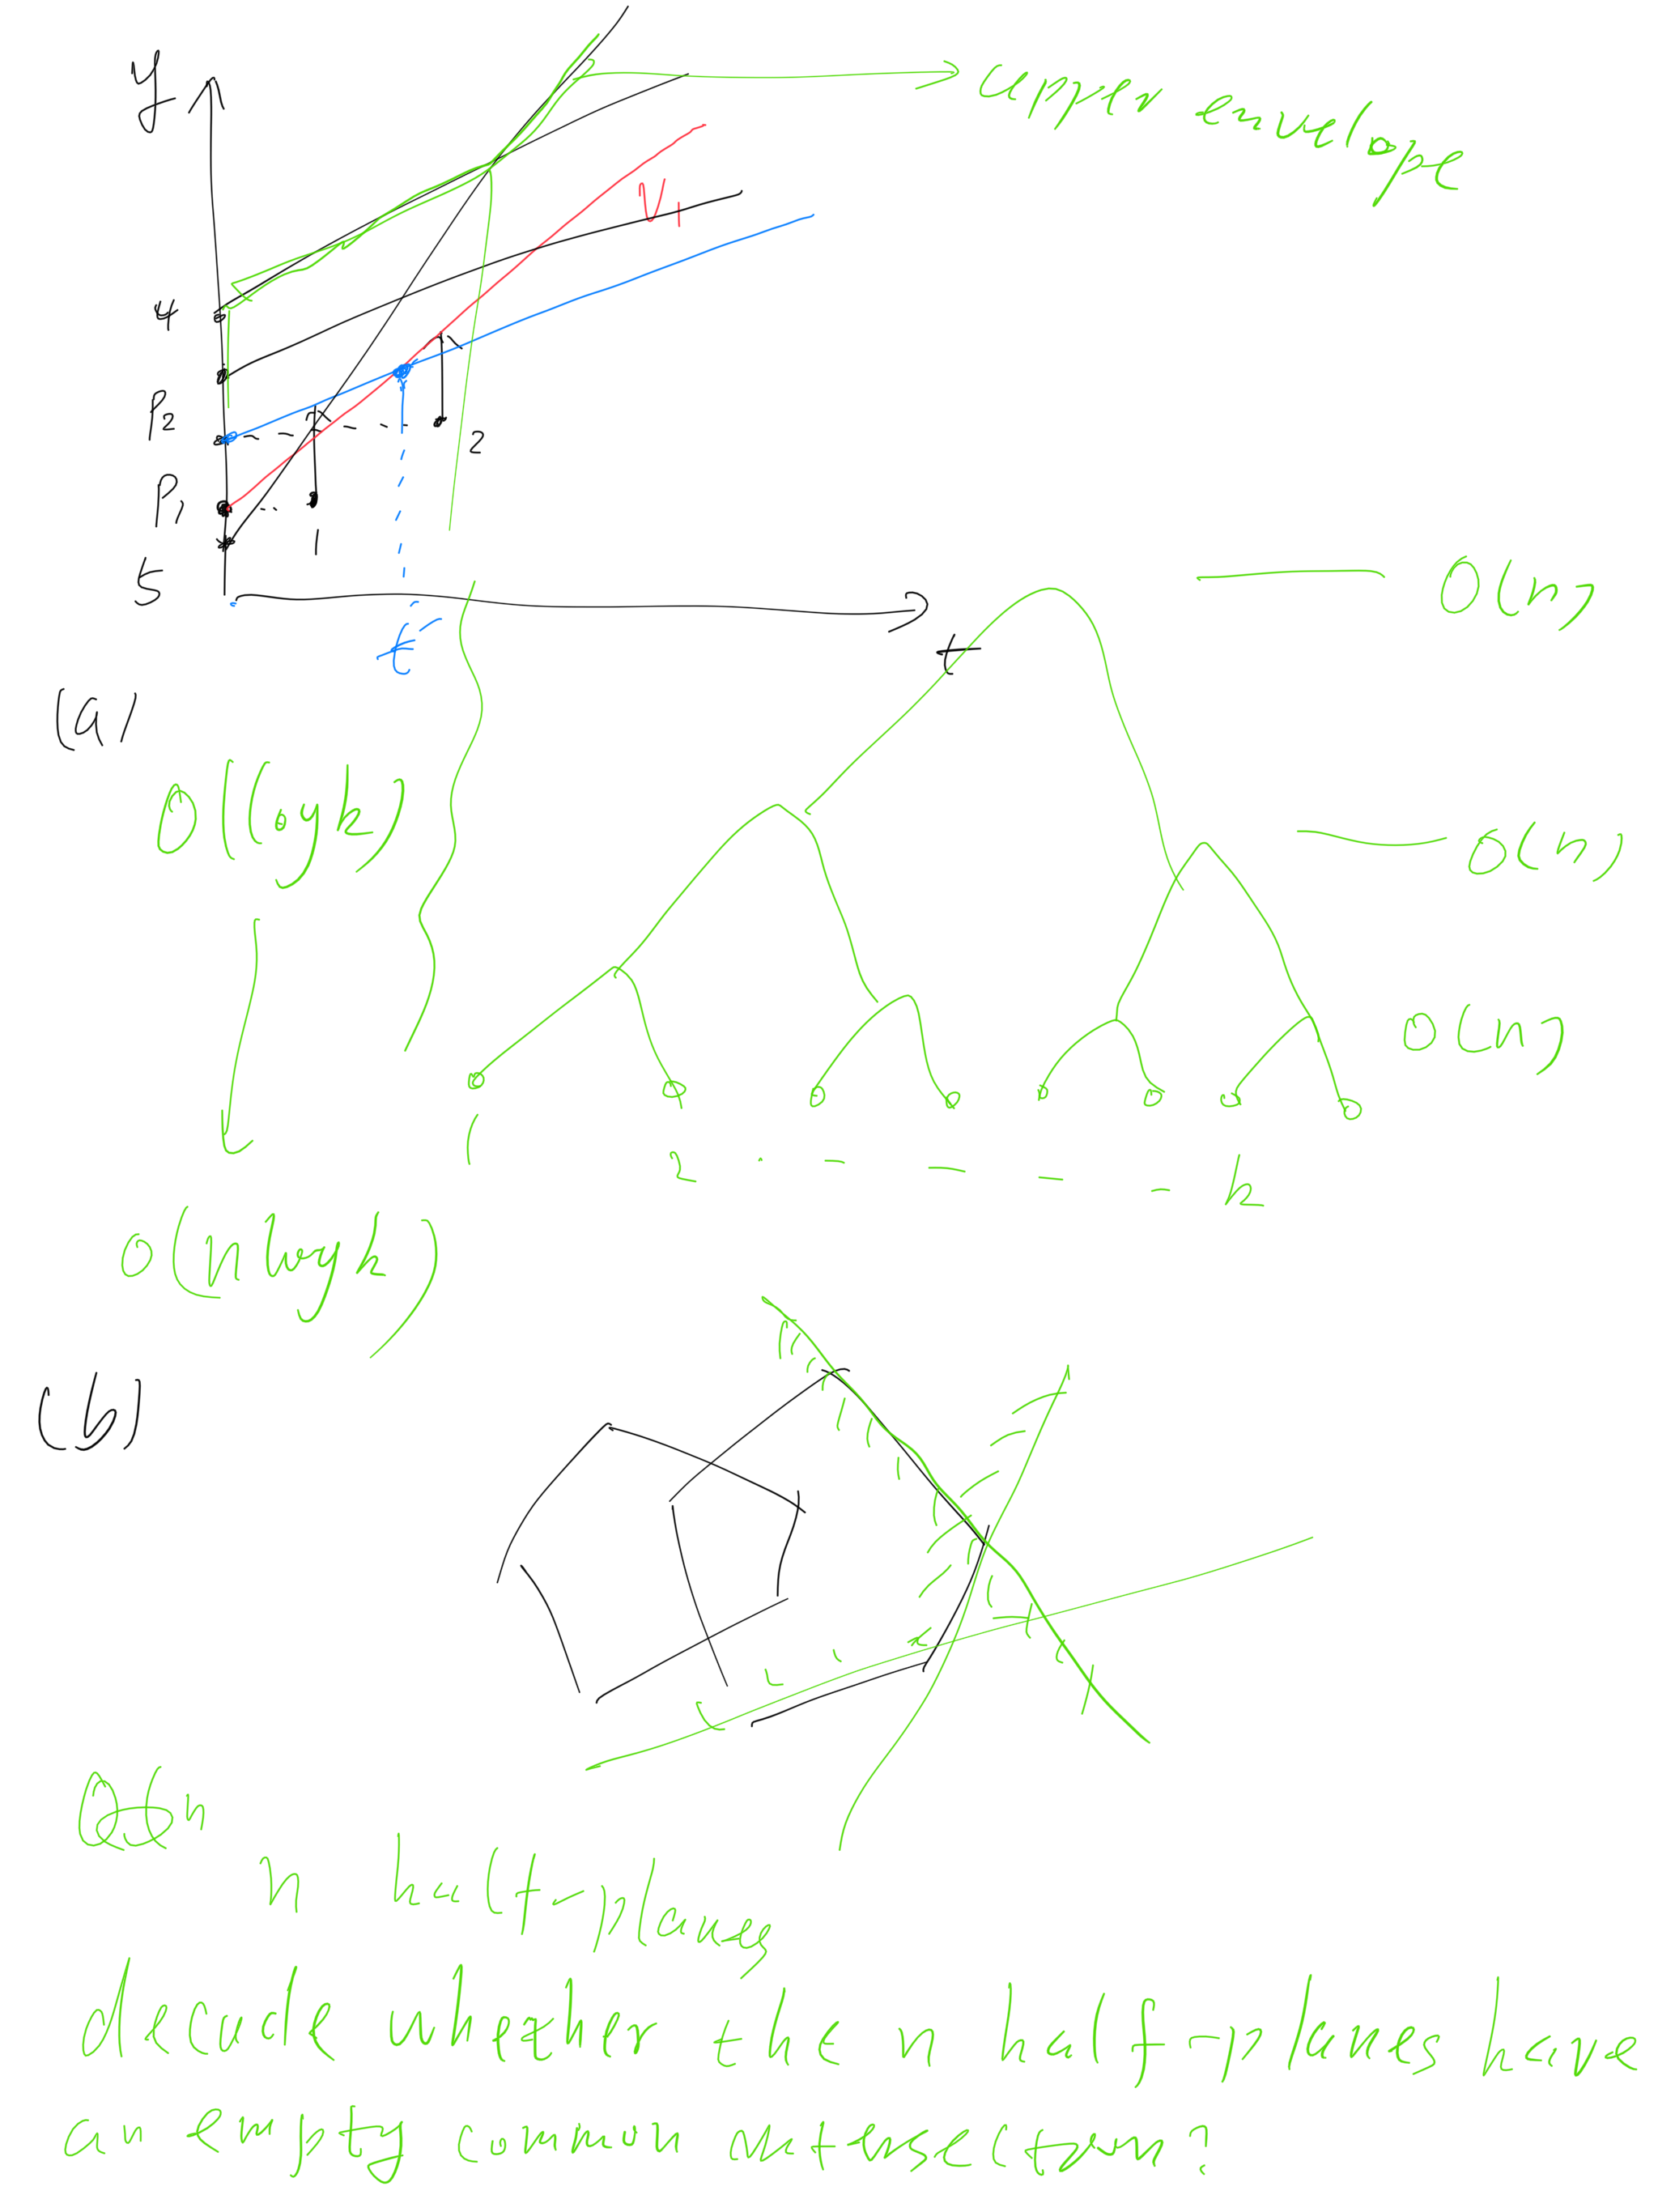 y
upper envelope
V1
4
P2
2
P1
1
5
t
t
O(n)
(a)
O(logk)
O(n)
O(n)
1 2 - - - - - k
O(nlogk)
(b)
Qtn
n half-planes
decide whether the n half-planes have
an empty common intersection?